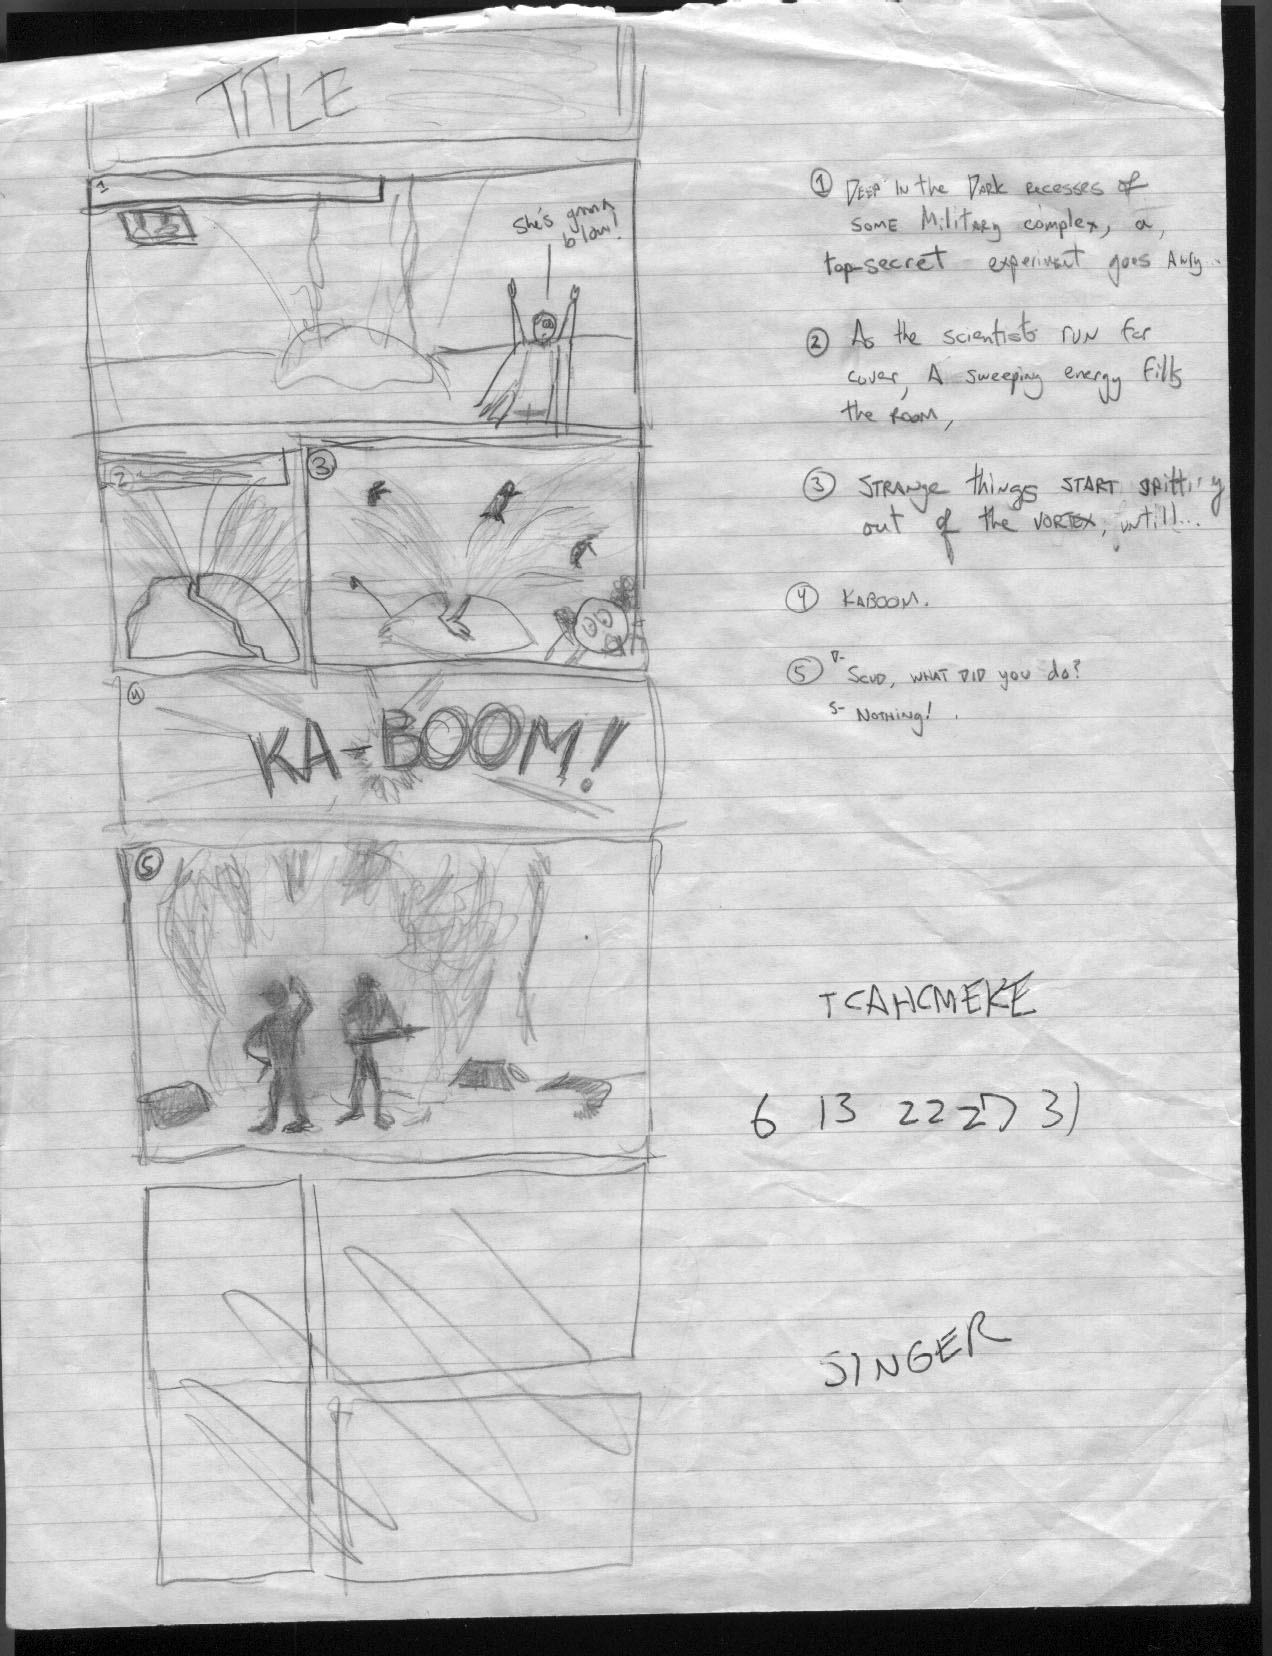 TITLE
1
She's gonna
blow!
2
3
4
KA-BOOM!
5
① DEEP IN the DARK recesses of
SOME Military complex, a,
top-secret experiment goes Awry...
② As the scientists run for
cover, A sweeping energy fills
the ROOM,
③ STRANGE things START SPITTING
out of the VORTEX, untill...
④ KABOOM.
⑤ D- SCUD, WHAT DID you do?
S- NOTHING!
TCAHCMEKE
6 13 22 27 31
SINGER